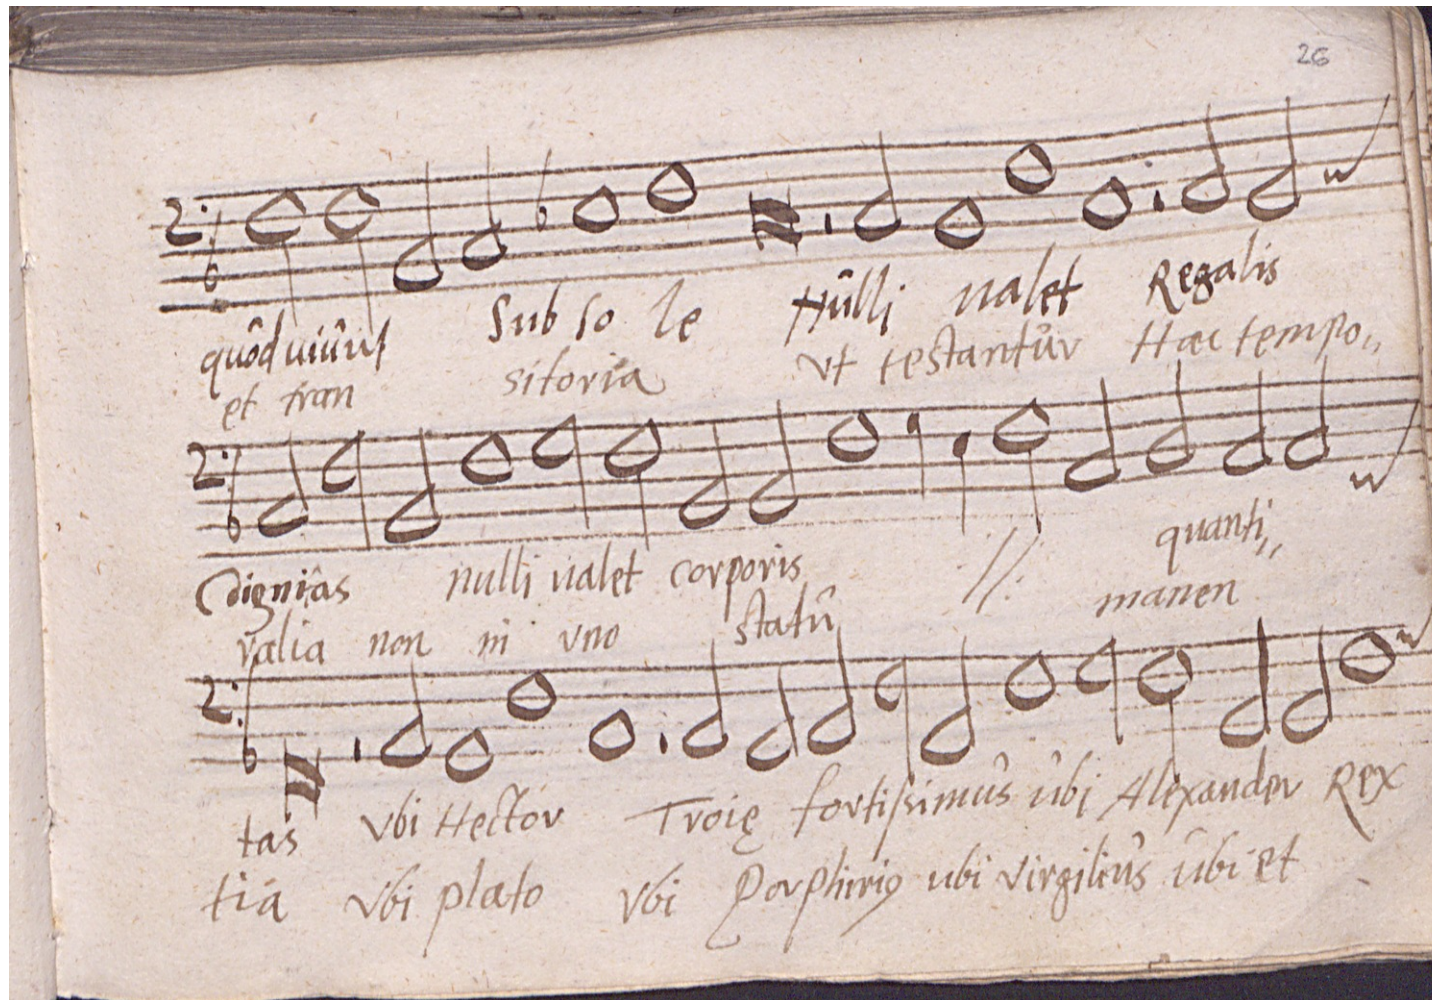 26
quôd uiûnt Sub so le Nûlli ualet Regalis
et tran sitoria vt testantûr Hæc tempo,,
Dignitas nulli ualet corporis quanti,,
ralia non in vno statû manen
tas vbi Hector Troię fortissimûs ûbi Alexander Rex
tia vbi plato vbi Porphirio ubi virgiliûs ûbi et